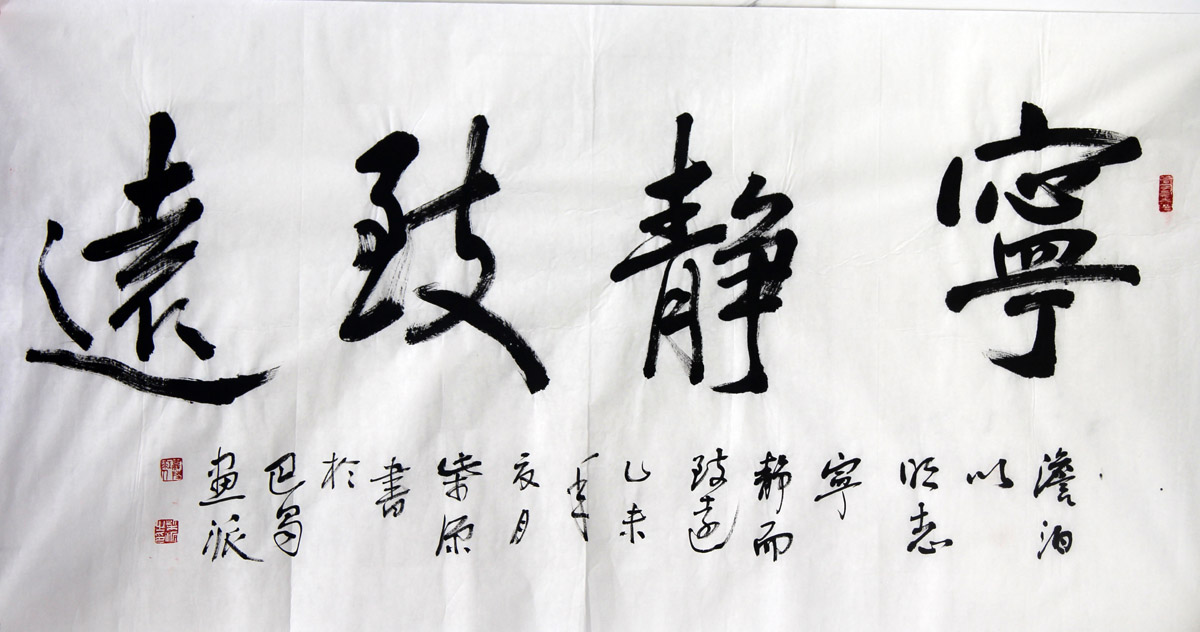 寧靜致遠
澹泊
以
明志
寧
靜而
致遠
乙未
年
夜月
柴原
書
於
巴蜀
畫派